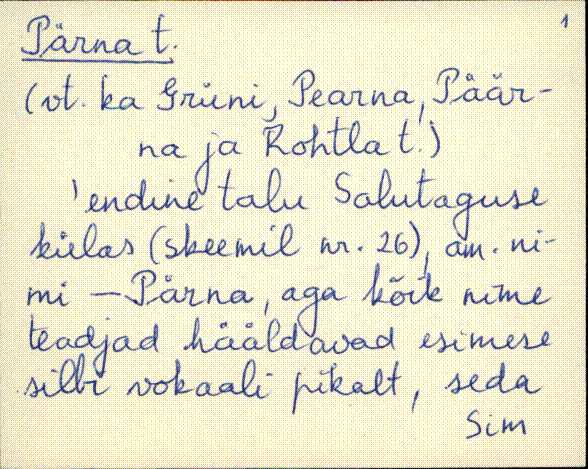 1
Pärna t.
(vt. ka Grüni, Pearna, Päär-
na ja Rohtla t.)
'endine talu Salutaguse
külas (skeemil nr. 26), am. ni-
mi — Pärna, aga kõik nime
teadjad hääldavad esimese
silbi vokaali pikalt, seda
Sim